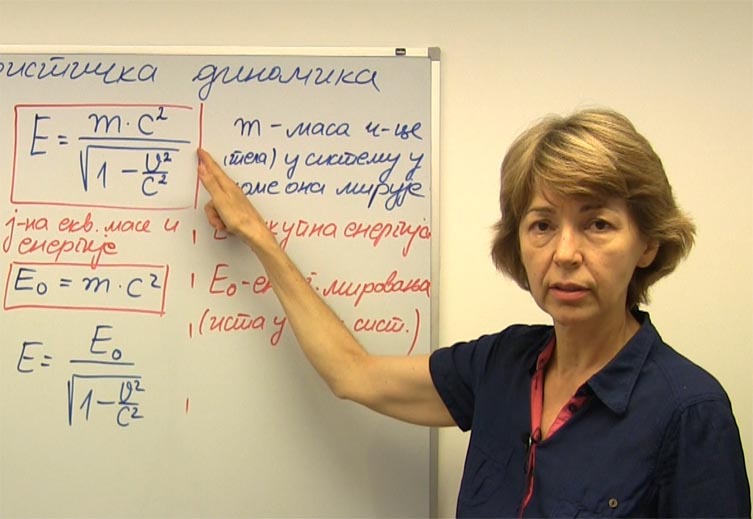 динамика
E = m·c² / √(1 − v²/c²)
m – маса ч-це
(тела) у систему у
она мирује.
ј-на екв. масе и
енергије
енергија
E₀ = m·c²
E₀ - мировања
(иста у сист.)
E = E₀ / √(1 − v²/c²)